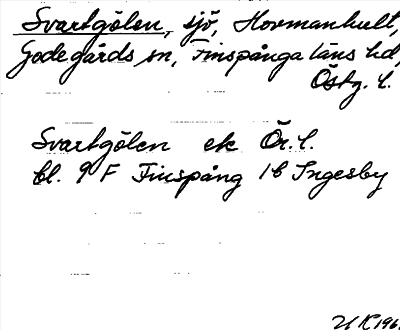 Svartgölen, sjö, Hovmanhult,
Godegårds sn, Finspånga läns hd,
Östg. l.
Svartgölen ek Ör. l.
bl. 9 F Finspång 1 b Ingesby
196